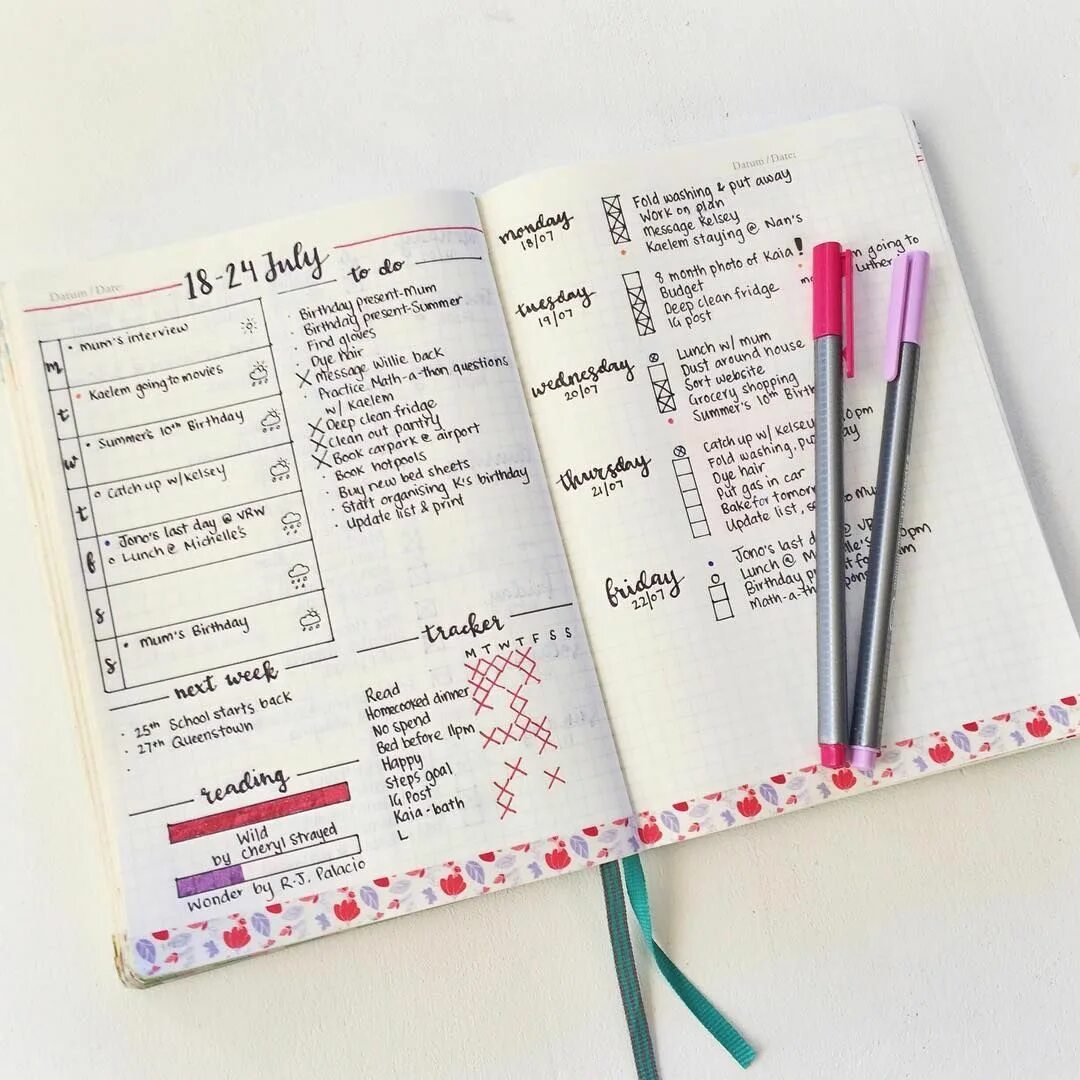 Datum / Date:
18-24 July
m
• mum's interview
t
• Kaelem going to movies
w
• Summer's 10th Birthday
t
○ Catch up w/ Kelsey
f
• Jono's last day @ VRW
○ Lunch @ Michelle's
s
s
• mum's Birthday
next week
· 25th School starts back
· 27th Queenstown
·
reading
Wild
by Cheryl Strayed
Wonder by R.J. Palacio
to do
· Birthday present-Mum
· Birthday present-Summer
· Find gloves
· Dye hair
X message Willie back
· Practice Math-a-thon questions
w/ Kaelem
X Deep clean fridge
X Clean out pantry
X Book carpark @ airport
· Book hotpools
· Buy new bed sheets
· Start organising K's birthday
· Update list & print
tracker
M T W T F S S
Read
Homecooked dinner
No spend
Bed before 11pm
Happy
Steps goal
IG Post
Kaia - bath
L
Datum / Date:
monday
18/07
Fold washing & put away
Work on plan
Message Kelsey
Kaelem staying @ Nan's
tuesday
19/07
8 month photo of Kaia!
Budget
Deep clean fridge
IG post
going to
wednesday
20/07
Lunch w/ mum
Dust around house
Sort website
Grocery shopping
Summer's 10th
thursday
21/07
Catch up w/ Kelsey
Fold washing,
Dye hair
Put gas in car
Bake for
Update list,
friday
22/07
Jono's last @ VRW
Lunch @
Birthday
Math-a-th